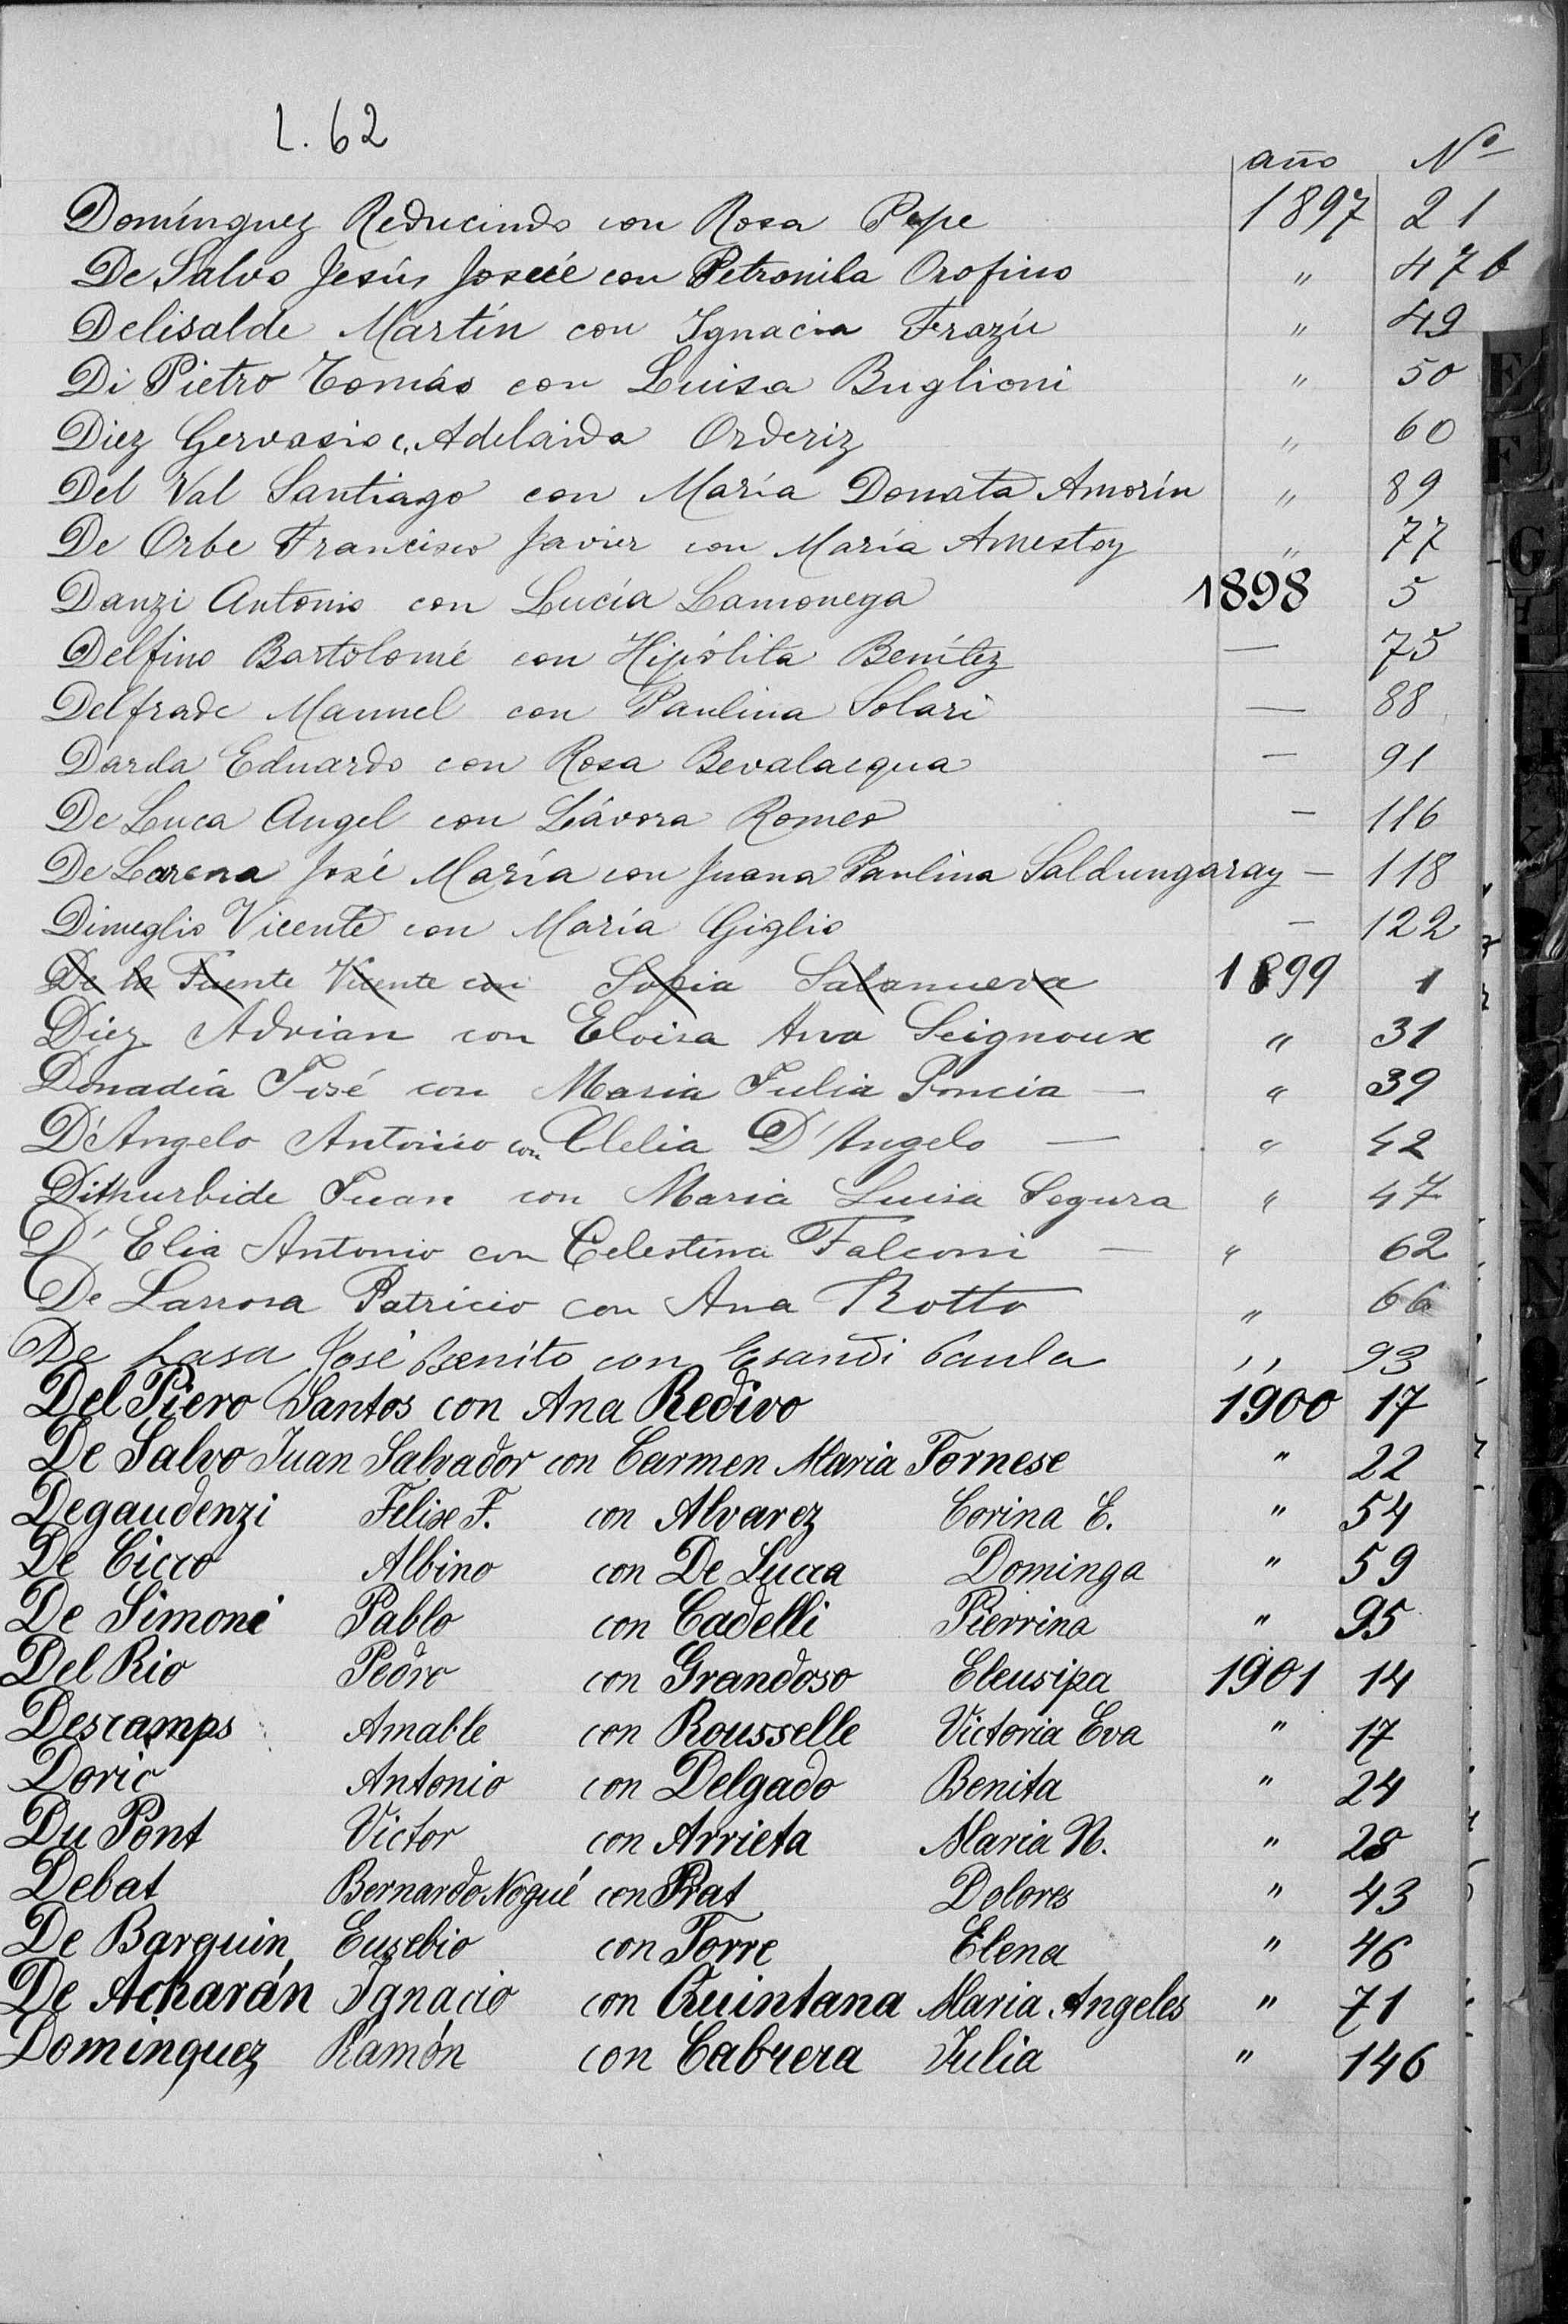 L. 62
año Nº
Domínguez Reducindo con Rosa Pepe 1897 21
De Salvo Jesús Josué con Petronila Orofino " 476
Delisalde Martín con Ignacia Frazú " 49
Di Pietro Tomás con Luisa Buglioni " 50
Diez Gervasio c. Adelaida Orderiz " 60
Del Val Santiago con María Donata Amorín " 89
De Orbe Francisco Javier con María Amestoy " 77
Danzi Antonio con Lucía Lamonega 1898 5
Delfino Bartolomé con Hipólita Benítez — 75
Delfrade Manuel con Paulina Solari — 88
Darda Eduardo con Rosa Bevalacqua — 91
De Luca Angel con Lávora Romeo — 116
De Lorena José María con Juana Paulina Saldungaray — 118
Dimeglio Vicente con María Giglio — 122
De la Fuente Vicente con Sofia Salanueva 1899 1
Diez Adrian con Eloisa Ana Seignoux " 31
Donadía José con Maria Julia Poncia — " 39
D'Angelo Antonio con Clelia D'Angelo — " 42
Dithurbide Juan con Maria Luisa Segura " 47
D' Elia Antonio con Celestina Falconi — " 62
De Larrosa Patricio con Ana Rotto " 66
De Lasa José Benito con Esandi Paula " 93
Del Piero Santos con Ana Redivo 1900 17
De Salvo Juan Salvador con Carmen Maria Fornese " 22
Degaudenzi Felise F. con Alvarez Corina E. " 54
De Cicco Albino con De Lucca Dominga " 59
De Simoni Pablo con Cadelli Pierrina " 95
Del Rio Pedro con Grandoso Eleusipa 1901 14
Descamps Amable con Rousselle Victoria Eva " 17
Doric Antonio con Delgado Benita " 24
Du Pont Victor con Arrieta Maria N. " 28
Debat Bernardo Nogué con Prat Dolores " 43
De Barquin Eusebio con Torre Elena " 46
De Acharán Ignacio con Quintana Maria Angeles " 71
Dominguez Ramón con Cabrera Julia " 146
E
F
G